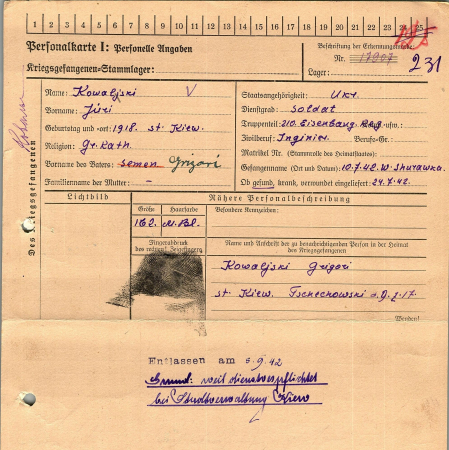 1 2 3 4 5 6 7 8 9 10 11 12 13 14 15 16 17 18 19 20 21 22 23 24 25
Personalkarte I: Personelle Angaben
Kriegsgefangenen-Stammlager:
Beschriftung der Erkennungsmarke
Nr. 17907
Lager: 231
Des Kriegsgefangenen
Name: Kowaljski V
Vorname: Jüri
Geburtstag und -ort: 1918. st Kiew.
Religion: Gr. Kath.
Vorname des Vaters: Semen Grigori
Familienname der Mutter: –
Staatsangehörigkeit: Ukr.
Dienstgrad: Soldat
Truppenteil: 210 Eisenbahn. Reg. usw.
Zivilberuf: Inginier. Berufs-Gr.:
Matrikel Nr. (Stammrolle des Heimatstaates):
Gefangennahme (Ort und Datum): 10.7.42. W. Shurawka.
Ob gesund, krank, verwundet eingeliefert: 24.7.42.
Lichtbild
Nähere Personalbeschreibung
Größe
Haarfarbe
Besondere Kennzeichen:
162
Fingerabdruck
des rechten Zeigefingers
Name und Anschrift der zu benachrichtigenden Person in der Heimat
des Kriegsgefangenen
Kowaljski Grigori
st Kiew. Tschechowski
Wenden!
Entlassen am 5.9.42
Grund: weil dienstverpflichtet
bei Stadtverwaltung Kiew